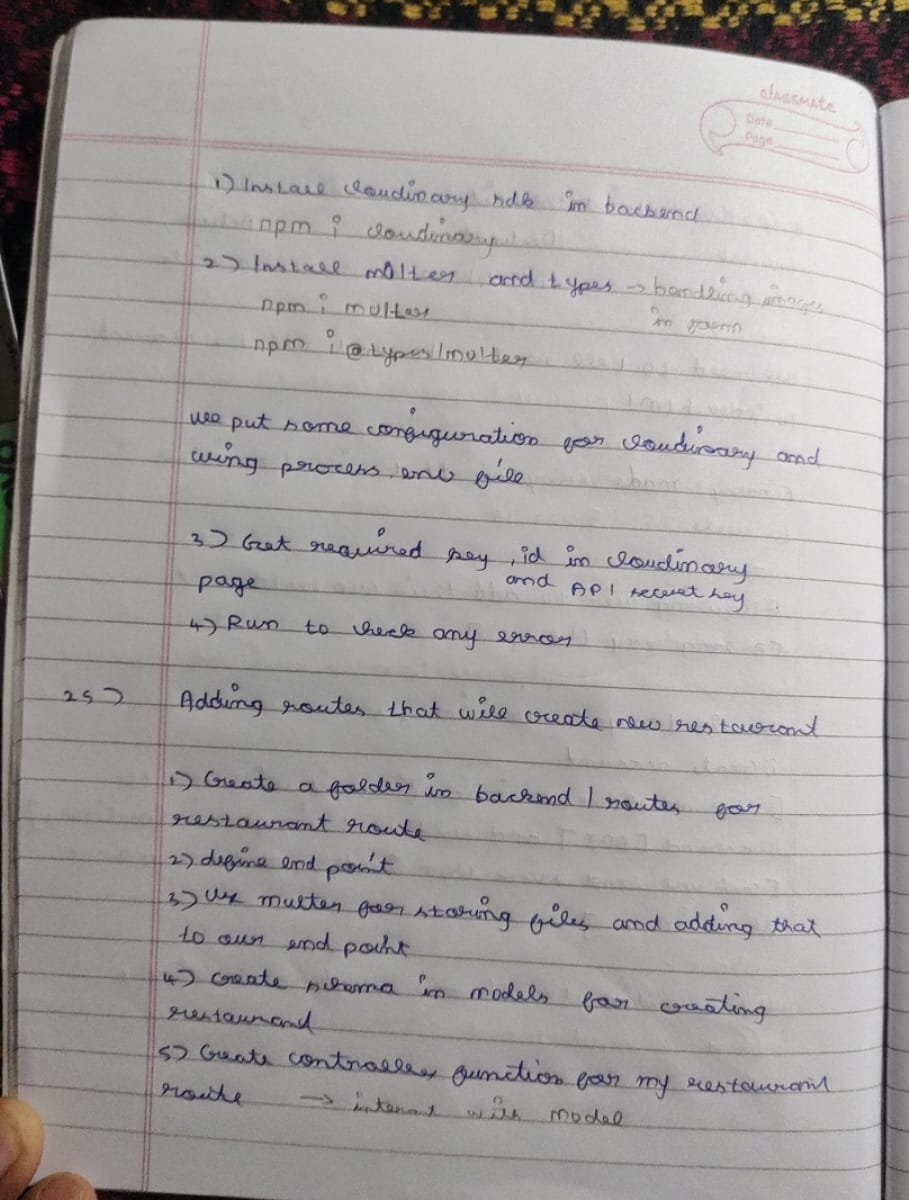 classmate
Date
Page
1) Install cloudinary sdk in backend
npm i cloudinary
2) Install multer and types → handling images
in form
npm i multer
npm i @types/multer
we put some configuration for cloudinary and
using process.env file
3) Get required key, id in cloudinary
page and API secret key
4) Run to check any error
25) Adding routes that will create new restaurant
1) Create a folder in backend / routes for
restaurant route
2) define end point
3) Use multer for storing files and adding that
to our end point
4) create schema in models for creating
restaurand
5) Create controller function for my restaurant
route → interact with model